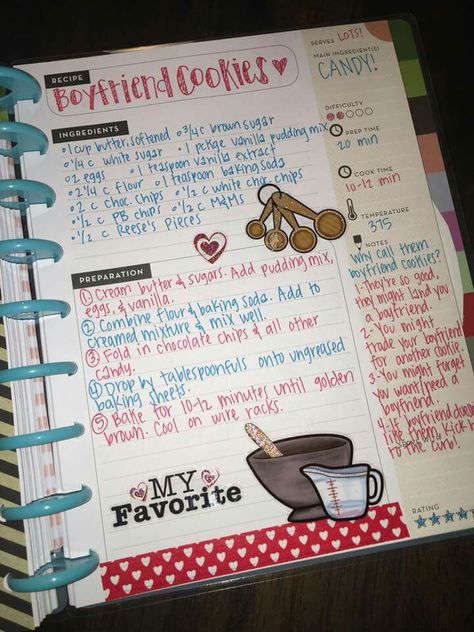 RECIPE
Boyfriend Cookies
INGREDIENTS
•1 cup butter, softened •3/4 c brown sugar
•1/4 c white sugar •1 pckge vanilla pudding mix
•2 eggs •1 teaspoon vanilla extract
•2 1/4 c flour •1 teaspoon baking soda
•2 c choc. chips •1/2 c white choc. chips
•1/2 c PB chips •1/2 c M&Ms
•1/2 c Reese's Pieces
PREPARATION
① Cream butter & sugars. Add pudding mix,
eggs, & vanilla.
② Combine flour & baking soda. Add to
creamed mixture & mix well.
③ Fold in chocolate chips & all other
candy.
④ Drop by tablespoonfuls onto ungreased
baking sheets.
⑤ Bake for 10-12 minutes until golden
brown. Cool on wire racks.
MY
Favorite
SERVES LOTS!
MAIN INGREDIENT(S)
CANDY!
DIFFICULTY
PREP TIME
20 min
COOK TIME
10-12 min
TEMPERATURE
375
NOTES
Why call them
boyfriend cookies?
1-They're so good,
they might land you
a boyfriend.
2-You might
trade your boyfriend
for another cookie.
3-You might forget
you want/need a
boyfriend.
4-If boyfriend doesn't
like them, kick him
to the curb!
RATING